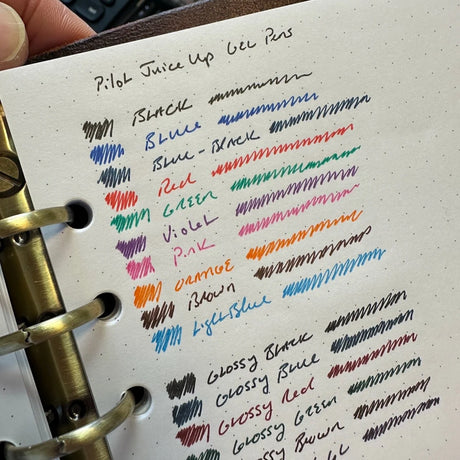 Pilot Juice Up Gel Pens
BLACK
BLUE
BLUE-BLACK
Red
GREEN
Violet
Pink
ORANGE
BROWN
Light Blue
GLOSSY BLACK
GLOSSY BLUE
GLOSSY Red
GLOSSY GREEN
GLOSSY BROWN